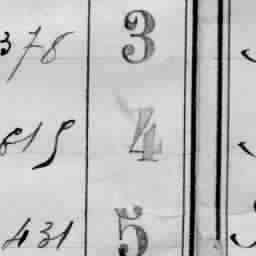 378 3
819 4
431 5